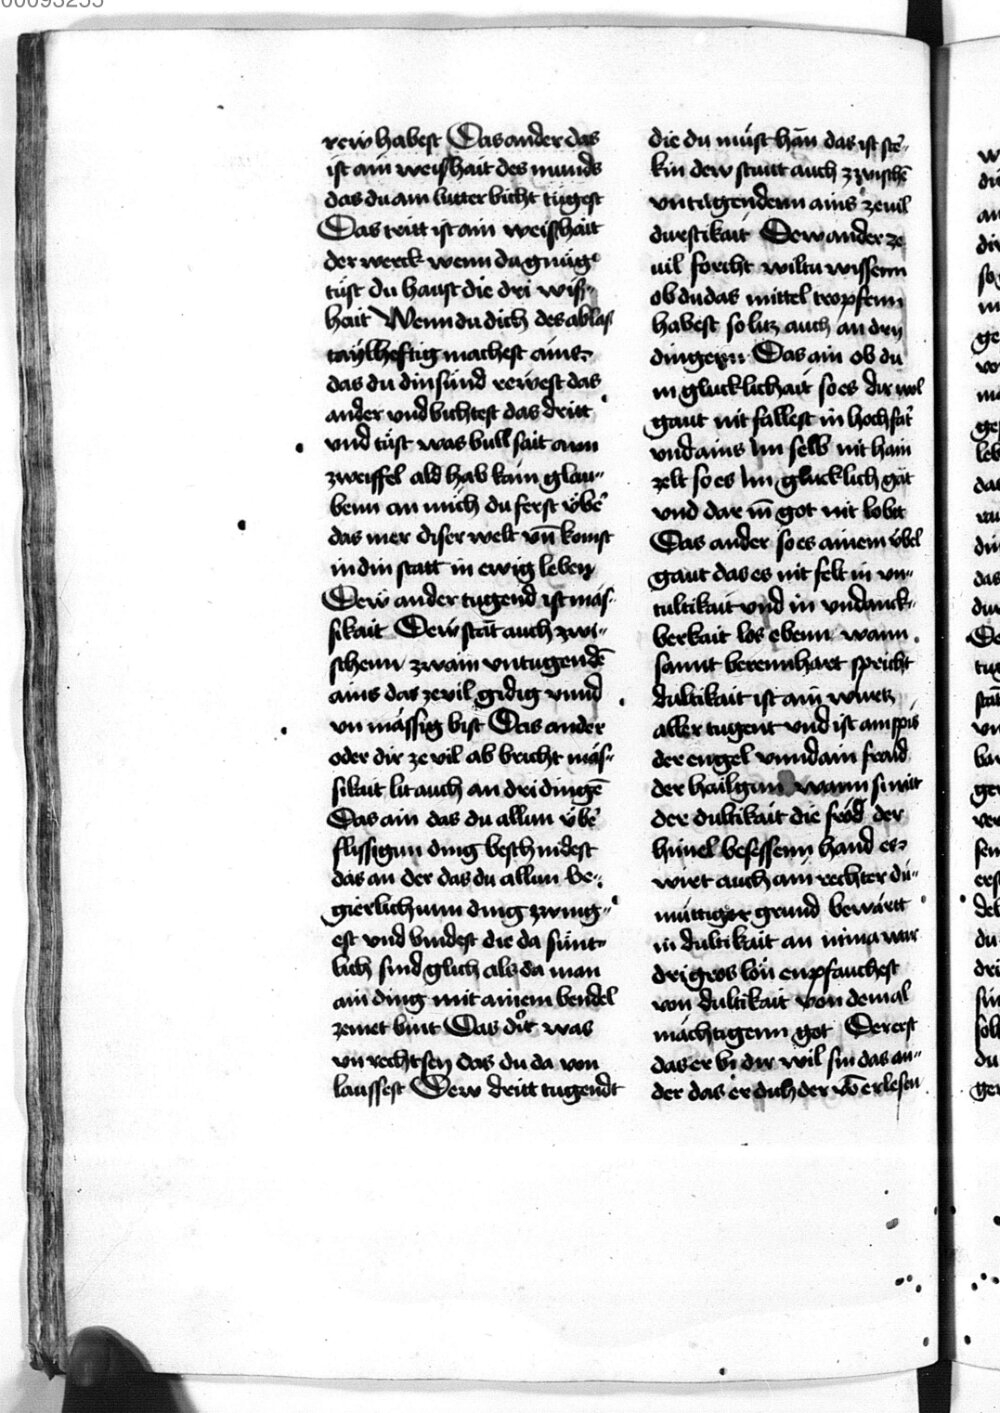 00095255
rew habest Das ander das
ist ain weishait des munds
das du ain lutter bicht tügest
Das tritt ist ain weishait
der werck wenn du gnüg
tüst du haust die dri wis-
hait Wenn du dich des ablas
taylheftig machest ains
das du din sünd rewest das
ander und bichtest das dritt
und tüst was
zweiffel ald hab kain glau-
benn an mich du ferst über
das mer diser welt vn̄ komst
in din statt in ewig leben
Dew ander tugend ist mäs-
sikait Dew stāt auch zwi-
schenn zwain untugendē
ains das ze vil gidig unnd
un mässig bist Das ander
oder dir ze vil ab bricht mäs-
sikait lit auch an dri dingē
Das ain das du allun übē
flissigun ding beschnidest
das an der das du allun be-
gierlichnun ding zwing-
est und bindest die da sünt-
lich sind glich als da man
ain ding mit ainem bendel
zemet bint Das drit was
un recht sey das du da von
laussest Dew dritt tugendt
die du müst hān das ist ster-
kin dew stautt auch zwischē
untugendenn ains ze vil
durstikait Dew ander ze
uil forcht wiltu wissenn
ob du das mittel tropfenn
habest so litz auch an dry
dingern Das ain ob du
in glucklichait so es dir wol
gaut nit fallest in hochfart
und ains im selb nit hain
zelt so es im glucklich gāt
und dar in̄ got nit lobtt
Das ander so es ainem übel
gaut das es nit felt in un-
tultikait und in undanck-
berkait los ebenn wann
sannt berennhart spricht
dultikait ist ain wurtz
aller tugent und ist ain spis
der engel unnd ain fraid
der hailgun wann si mitt
der dultikait die fröd der
himel besessenn hand es
wirt auch ain rechter dü-
müttiger grund bewärtt
in dultikait an nima war
dri gros lon enpfauchest
von dultikait von dem al
mächtigenn got Der erst
das er bi dir wil sin das an-
der das er dich der von erlesen